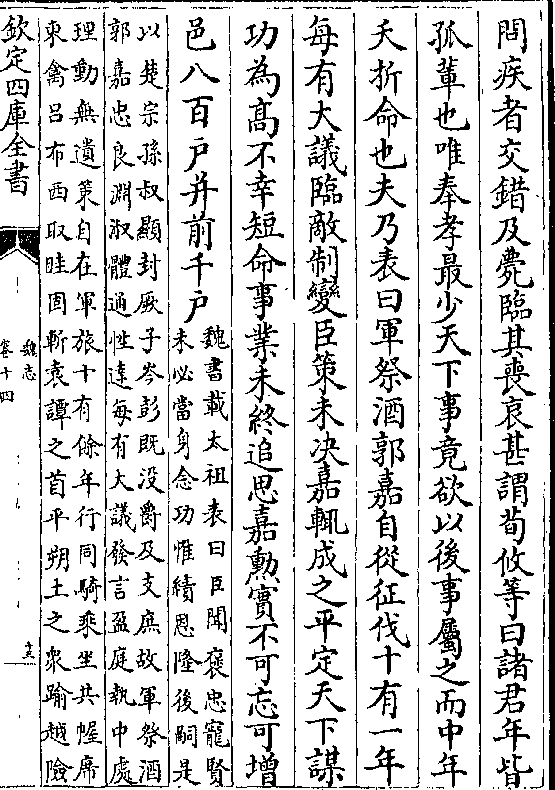 問疾者交錯及薨臨其喪哀甚謂荀攸等曰諸君年皆
孤輩也唯奉孝最少天下事竟欲以後事屬之而中年
夭折命也夫乃表曰軍祭酒郭嘉自從征伐十有一年
每有大議臨敵制變臣策未決嘉輒成之平定天下謀
功為髙不幸短命事業未終追思嘉勲實不可忘可增
邑八百户并前千户
魏書載太祖表曰臣聞襃忠寵賢
未必當身念功惟績恩隆後嗣是
以楚宗孫叔顯封厥子岑彭既没爵及支庶故軍祭酒
郭嘉忠良淵淑體通性達每有大議發言盈庭執中處
理動無遺策自在軍旅十有餘年行同騎乘坐共幄席
東禽吕布西取眭固斬袁譚之首平朔土之衆踰越險
欽定四庫全書
魏志
卷十四